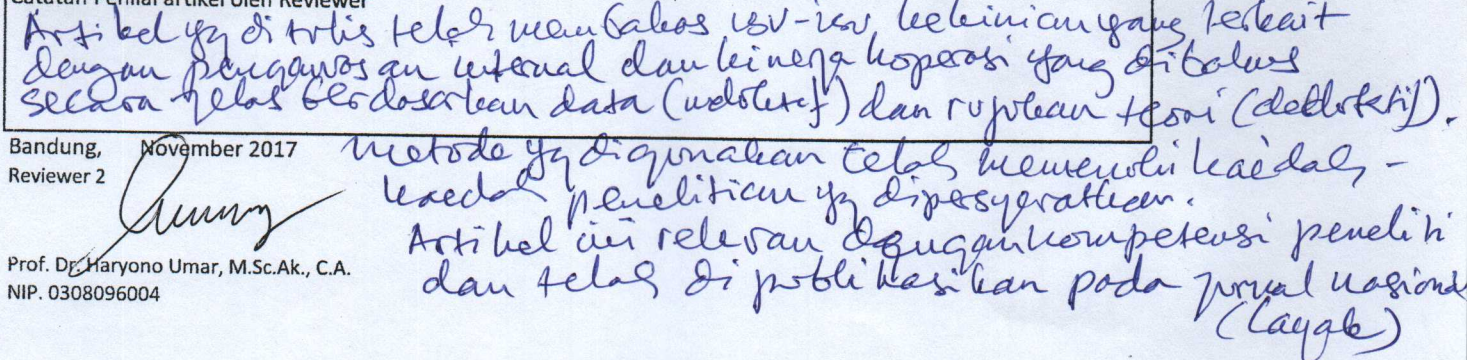 Catatan Penilai artikel oleh Reviewer
Artikel yg ditulis telah membahas isu-isu kekinian yang terkait
dengan pengawasan internal dan kinerja koperasi yang dibahas
secara jelas berdasarkan data (induktif) dan rujukan teori (deduktif).
Metode yg digunakan telah memenuhi kaedah-
kaedah penelitian yg dipersyaratkan.
Artikel ini relevan dengan kompetensi peneliti
dan telah dipublikasikan pada jurnal nasional
(layak)
Bandung, November 2017
Reviewer 2
Prof. Dr. Haryono Umar, M.Sc.Ak., C.A.
NIP. 0308096004